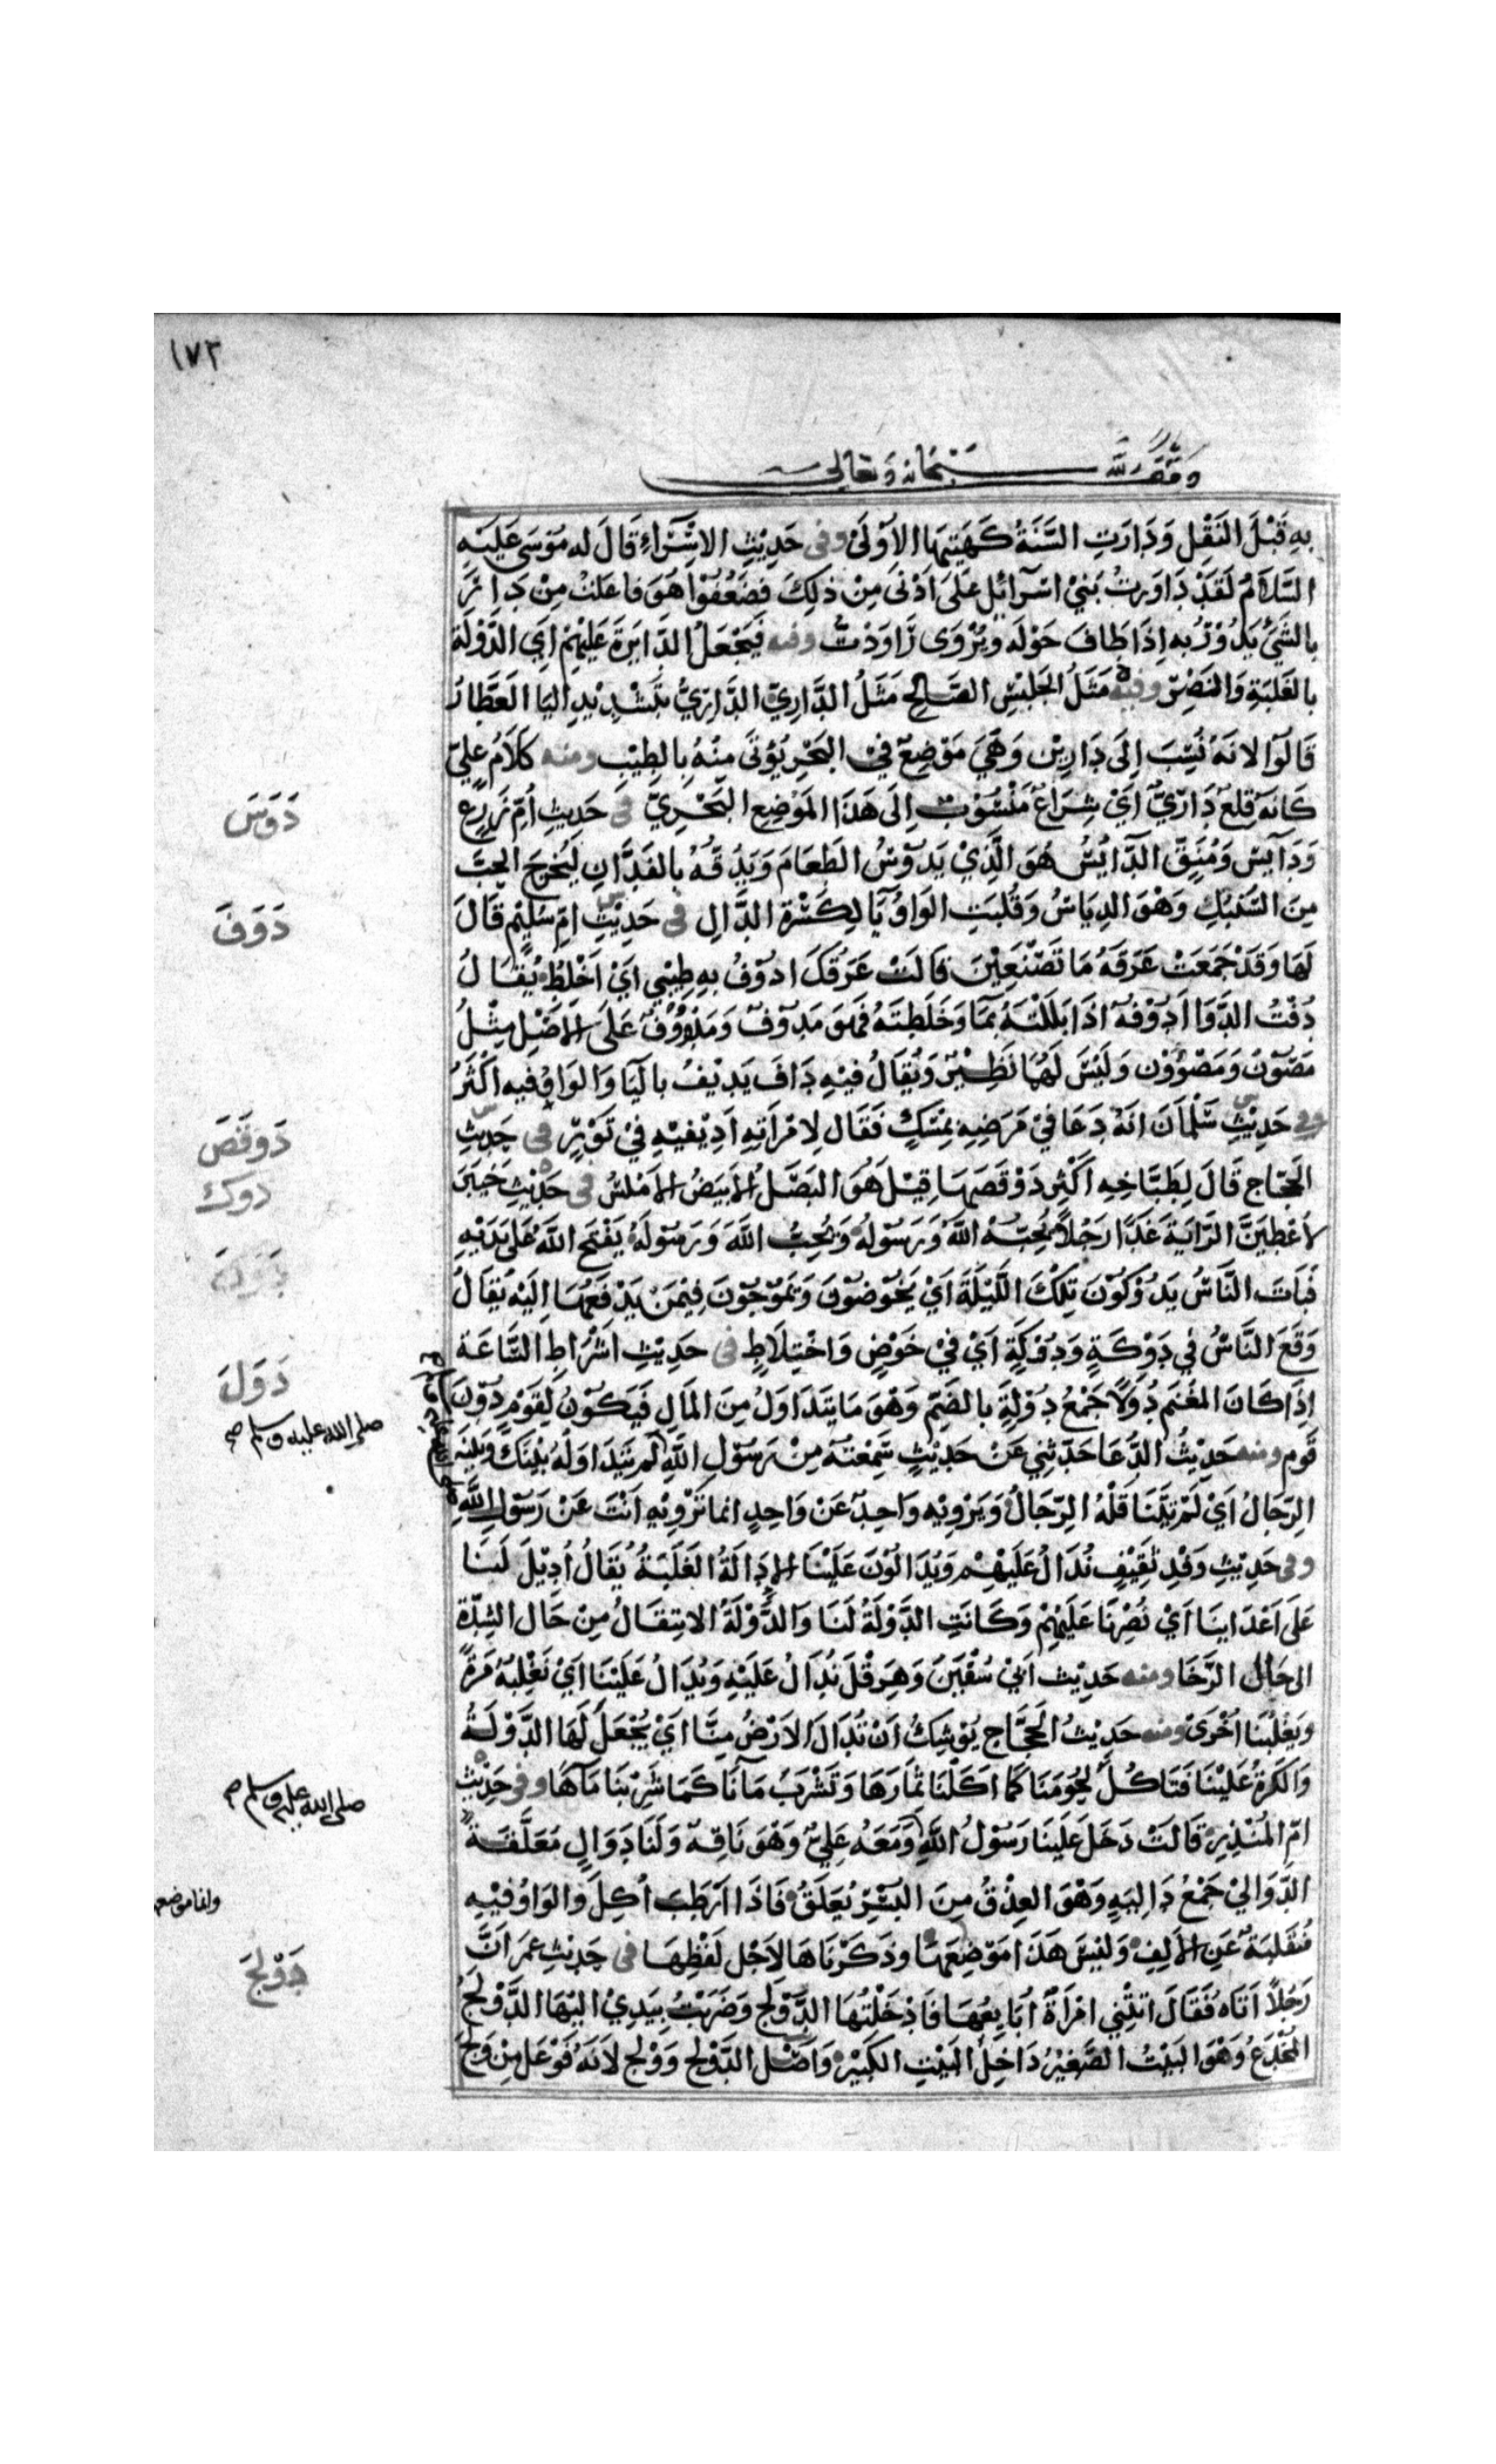 ١٧٣
وقف لله سبحانه وتعالى
به قَبْلَ النَقْلِ وَدَارَتِ السَّنَةُ كَهَيْئَتِهَا الأوْلَى وفي حَدِيْثِ الاسْرَاءِ قَالَ له مُوْسَى عَلَيْهِ
السَّلاَمُ لَقَدْ دَاوَرتُ بَنِيْ اسْرَائِل عَلَى اَدْنَى مِنْ ذلِكَ فضَعُفُوا هُوَ فاعَلتُ مِنْ دَارَ
بالشَيْ يَدُوْرُ به اِذَا طَافَ حَوْلَه ويُرْوَى رَاوَدْتُ ومنه فَيَجْعَلُ الدَّايِرَةَ عَلَيْهِمْ اَيِ الدَّوْلَة
بالغَلَبَةِ وَالنَصْرِ وفيه مَثَلُ الجَلِيْسِ الصَّالِحِ مَثَلُ الدَّارِيِّ الدَّارِيُّ بتَشْدِيْدِ اليَا العَطَّارُ
قَالُوْا لانهُ نُسِبَ اِلَى دَارِيْن وَهْيَ مَوْضِعٌ فِيْ البَحْرِ يُؤْتَى مِنْهُ بِالطِيْبِ ومنه كَلاَمُ عَلِيّ
كَانهُ قِلعٌ دَارِيٌّ اَيْ شِرَاعٌ مَنْسُوْبٌ اِلَى هَذَا المَوْضِعِ البَحْرِيّ في حَدِيثِ اُمّ زَرْعٍ
دَوَسَ
وَدَايِسٍ وَمُنِقٍّ الدَّايِسُ هُوَ الَّذِيْ يَدُوْسُ الطَعَامَ وَيَدُقُّهُ بالفَدَّانِ ليُخرِجَ الحَبَّ
مِنَ السُّنْبُلِ وَهْوَ الدِيَاسُ وَقُلِبَتِ الوَاوُ يَا لِكَسْرَةِ الدَّالِ في حَدِيْثِ امّ سُلَيْمٍ قَالَ
دَوَفَ
لَهَا وَقَدْ جَمَعَتْ عَرَقَهُ مَا تَصْنَعِيْنَ قَالَتْ عَرَقُكَ ادُوْفُ بهِ طِيْبِي اَيْ اَخْلِطُ يُقَالُ
دُفْتُ الدَّوَا اَدُوْفهُ اذَا بَلَلتَهُ بمَا وَخَلَطتَهُ فَهوَ مَدُوْفٌ وَمَدْوُوْفٌ عَلَى الاصْلِ مِثْلُ
مَصُوْنٍ وَمَصْوُوْنٍ وَلَيْسَ لَهُمَا نَظِيْرٌ وَيُقَالُ فيْهِ دَافَ يَدِيْفُ بالْيَا وَالوَاوُ فيه اكْثَرُ
وفي حَدِيْثِ سَلْمَانَ انَهُ دَعَا فيْ مَرَضِهِ بِمِسْكٍ فَقَال لاِمْرَأتِهِ اَدِيْفيْهِ فيْ تَوْرٍ في حَدِيْثِ
دَوقَصَ
الحَجَّاجِ قَالَ لِطَبَّاخِهِ اَكْثِر دَوْقَصَهَا قِيْلَ هُوَ البَصَلُ الاَبيَضُ الاَمْلَسُ في حَدِيْثِ خَيْبَرَ
دوك
لاُعْطِيَنَّ الرَايَةَ غَدًا رَجُلاً يُحِبّهُ اللهُ وَرَسُوْلهُ وَيُحِبُّ اللهَ وَرَسُوْلَهُ يَفْتَحُ اللهُ عَلَى يَدَيْهِ
فَبَاتَ النَّاسُ يَدُوْكُوْنَ تِلْكَ اللَّيْلَةَ اَيْ يَخُوْضُوْنَ وَيَمُوْجُوْنَ فِيْمَنْ يَدْفَعُهَا اِلَيْهِ يُقَالُ
وَقَعَ النَّاسُ فِي دَوْكَةٍ وَدُوْكَةٍ اَيْ فيْ خَوْضٍ وَاخْتِلاَطٍ في حَدِيْثِ اشْرَاطِ السَّاعَة
دَوَلَ
اِذَا كَانَ المَغْنَم دُوَلاً جَمْعُ دُوْلَةٍ بالضَمّ وَهْوَ مَا يتَدَاوَلُ مِنَ المَالِ فَيَكُوْنُ لِقَوْمٍ دُوْنَ
صلى الله عليه وسلم صح
قَوم ومنه حَدِيْثُ الدُّعَا حَدّثنِي عَنْ حَدِيْثٍ سَمِعْتَهُ مِنْ رَسُوْلِ اللهِ لم يَتَدَاوَلْهُ بَيْنَكَ وبَيْنَهُ
الرِّجَالُ اَيْ لَمْ يَتَنَاقَلْهُ الرّجَالُ وَيَرْوِيْهِ وَاحِدٌ عَنْ وَاحِدٍ انما تَرْوِيْهِ اَنْتَ عَنْ رَسُوْلِ اللهِ
وفي حَدِيْثِ وَفْدِ ثَقِيْفٍ نُدَالُ عَلَيْهِمْ وَيُدَالُوْنَ عَلَيْنَا الاِدَالَةُ الغَلَبَةُ يُقَالُ اُدِيْلَ لَنَا
عَلَى اَعْدَايِنَا اَيْ نُصِرْنَا عَلَيْهِمْ وَكَانَتِ الدَّوْلَةُ لَنَا وَالدَّوْلَةُ الانتِقَالُ مِنْ حَال الشِدَّة
الى حَالِ الرَّخَا ومنه حَدِيْث ابي سُفْيَنَ وَهِرَقْلَ نُدَالُ عَلَيْهِ وَيُدَالُ عَلَيْنَا اَيْ نَغْلِبهُ مَرَّةً
وَيَغْلِبُنَا اُخْرَى ومنه حَدِيْثُ الحَجَّاجِ يُوْشِكُ اَنْ تُدَالَ الاَرْضُ مِنَّا اَيْ يُجْعَلُ لَهَا الدَّوْلَةُ
وَالكَرَّةُ عَلَيْنَا فَتَاكُلُ لحُوْمَنَا كَمَا اَكَلْنَا ثِمَارَهَا وَتَشْرَبُ دِمَآنَا كَمَا شَرِبْنَا مَآهَا وفي حَدِيْثِ
صلى الله عليه وسلم
امّ المُنْذِرِ قَالَتْ دَخَلَ عَلَيْنَا رَسُوْلُ اللهِ وَمَعَهُ عَلِيٌّ وَهْوَ نَاقِهٌ وَلَنَا دَوَالٍ مُعَلَّقَةٌ
الدَّوَالِيْ جَمْعُ دَالِيَةٍ وَهْوَ العِذْقُ مِنَ البُسْرِ يُعَلَّقُ فَاذَا اَرْطَبَ اُكِلَ وَالوَاوُ فيْهِ
مُنْقَلِبَةٌ عَنِ الاَلِفِ وَلَيْسَ هَذَا مَوْضِعَهَا وذَكَرْنَاهَا لاَجْل لَفْظِهَا في حَدِيْثِ عمَرَ انَّ
دَوْلَجَ
رَجُلاً اَتَاهُ فَقَالَ اتَتْنِي امْرَأَةٌ اُبَايِعُهَا فَاَدْخَلْتُهَا الدَّوْلَجَ وَضَرَبْتُ بِيَدِيْ اليْهَا الدَّوْلَجُ
المُخْدَعُ وَهْوَ البَيْتُ الصَّغِيْرُ دَاخِلَ البَيْتِ الكَبِيْرِ وَاَصْل الدَّوْلَج وَوْلَج لانَهُ فَوْعَل مِنْ وَلَجَ